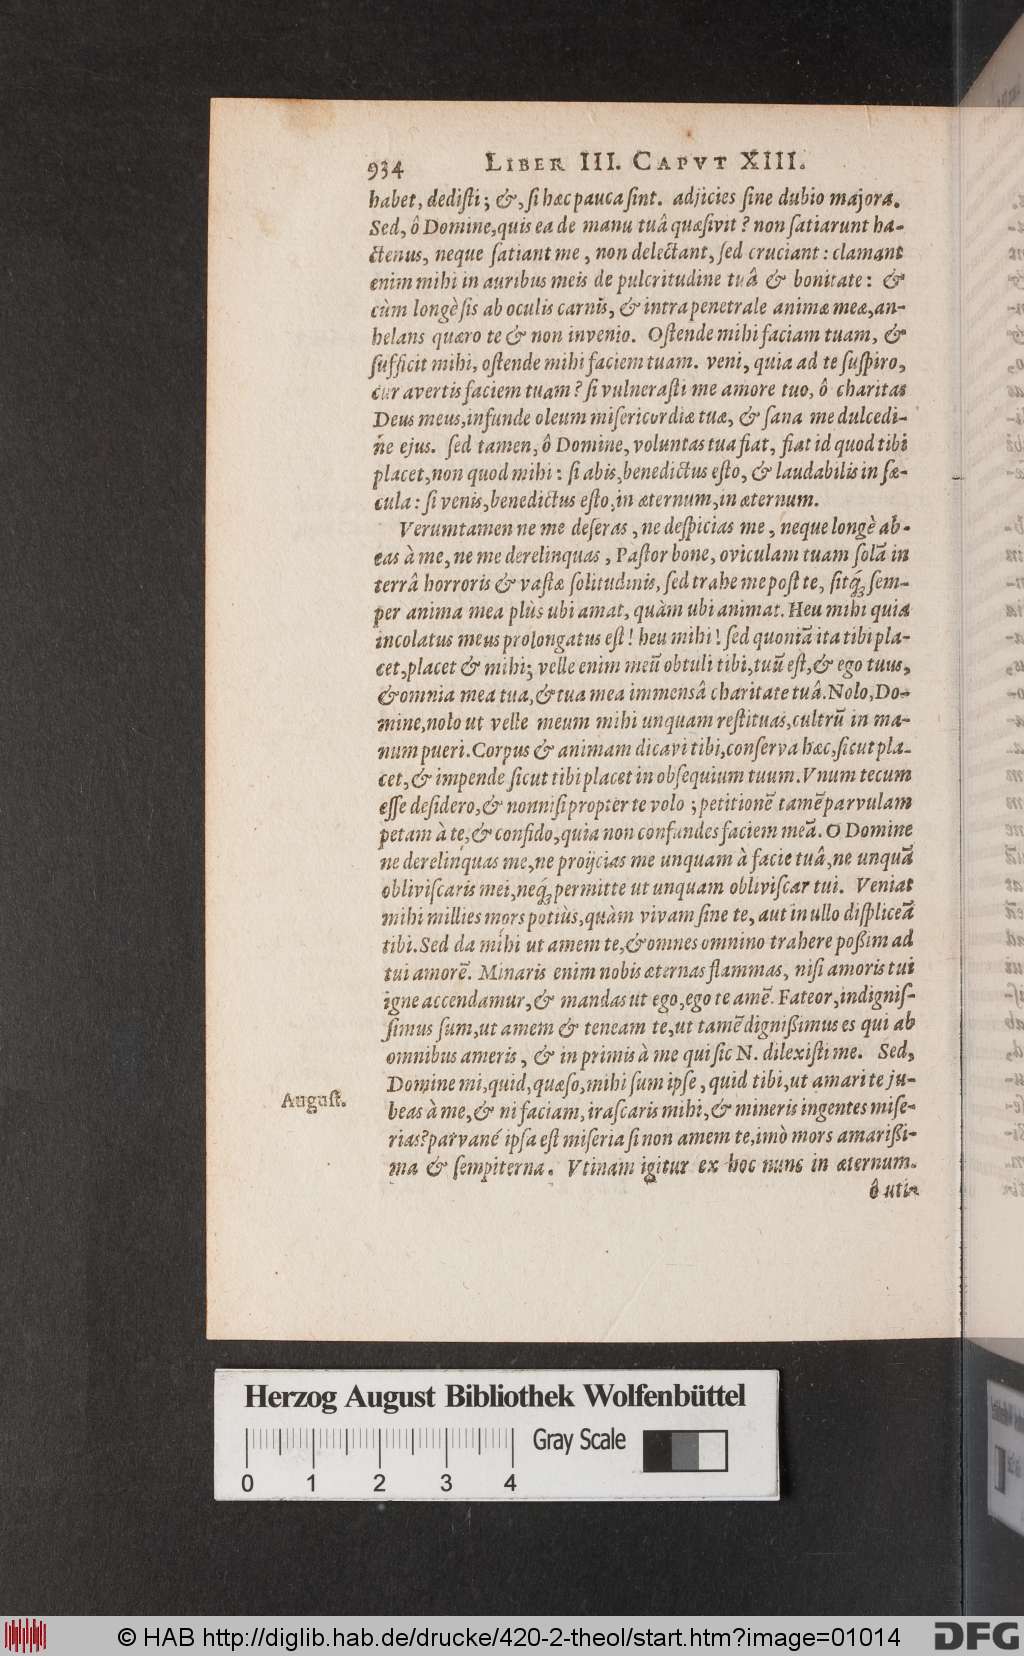 934 LIBER III. CAPVT XIII.
habet, dediſti; &, ſi hæc pauca ſint. adjicies ſine dubio majora.
Sed, ô Domine, quis ea de manu tuâ quæſivit? non ſatiarunt ha-
ctenus, neque ſatiant me, non delectant, ſed cruciant: clamant
enim mihi in auribus meis de pulcritudine tuâ & bonitate: &
cùm longè ſis ab oculis carnis, & intra penetrale animæ meæ, an-
helans quæro te & non invenio. Oſtende mihi faciam tuam, &
ſufficit mihi, oſtende mihi faciem tuam. veni, quia ad te ſuſpiro,
cur avertis faciem tuam? ſi vulneraſti me amore tuo, ô charitas
Deus meus, infunde oleum miſericordiæ tuæ, & ſana me dulcedi-
ne ejus. ſed tamen, ô Domine, voluntas tua fiat, fiat id quod tibi
placet, non quod mihi: ſi abis, benedictus eſto, & laudabilis in ſæ-
cula: ſi venis, benedictus eſto, in æternum, in æternum.
Verumtamen ne me deſeras, ne deſpicias me, neque longè ab-
eas à me, ne me derelinquas, Paſtor bone, oviculam tuam ſolā in
terrâ horroris & vaſtæ ſolitudinis, ſed trahe me poſt te, ſitq́; ſem-
per anima mea plùs ubi amat, quàm ubi animat. Heu mihi quia
incolatus meus prolongatus eſt! heu mihi! ſed quoniā ita tibi pla-
cet, placet & mihi; velle enim meū obtuli tibi, tuū eſt, & ego tuus,
& omnia mea tua, & tua mea immensâ charitate tuâ. Nolo, Do-
mine, nolo ut velle meum mihi unquam reſtituas, cultrū in ma-
num pueri. Corpus & animam dicavi tibi, conſerva hæc, ſicut pla-
cet, & impende ſicut tibi placet in obſequium tuum. Vnum tecum
eſſe deſidero, & nonniſi propter te volo; petitionē tamē parvulam
petam à te, & confido, quia non confundes faciem meā. O Domine
ne derelinquas me, ne proijcias me unquam à facie tuâ, ne unquā
obliviſcaris mei, neq́; permitte ut unquam obliviſcar tui. Veniat
mihi millies mors potiùs, quàm vivam ſine te, aut in ullo diſpliceā
tibi. Sed da mihi ut amem te, & omnes omnino trahere poßim ad
tui amorē. Minaris enim nobis æternas flammas, niſi amoris tui
igne accendamur, & mandas ut ego, ego te amē. Fateor, indigniſ-
ſimus ſum, ut amem & teneam te, ut tamē digniſſimus es qui ab
omnibus ameris, & in primis à me qui ſic N. dilexiſti me. Sed,
Domine mi, quid, quæſo, mihi ſum ipſe, quid tibi, ut amari te ju-
Auguſt.
beas à me, & ni faciam, iraſcaris mihi, & mineris ingentes miſe-
rias? parvané ipſa eſt miſeria ſi non amem te, imò mors amarißi-
ma & ſempiterna. Vtinam igitur ex hoc nunc in æternum.
ô uti-
Herzog August Bibliothek Wolfenbüttel
0 1 2 3 4
Gray Scale
© HAB http://diglib.hab.de/drucke/420-2-theol/start.htm?image=01014
DFG